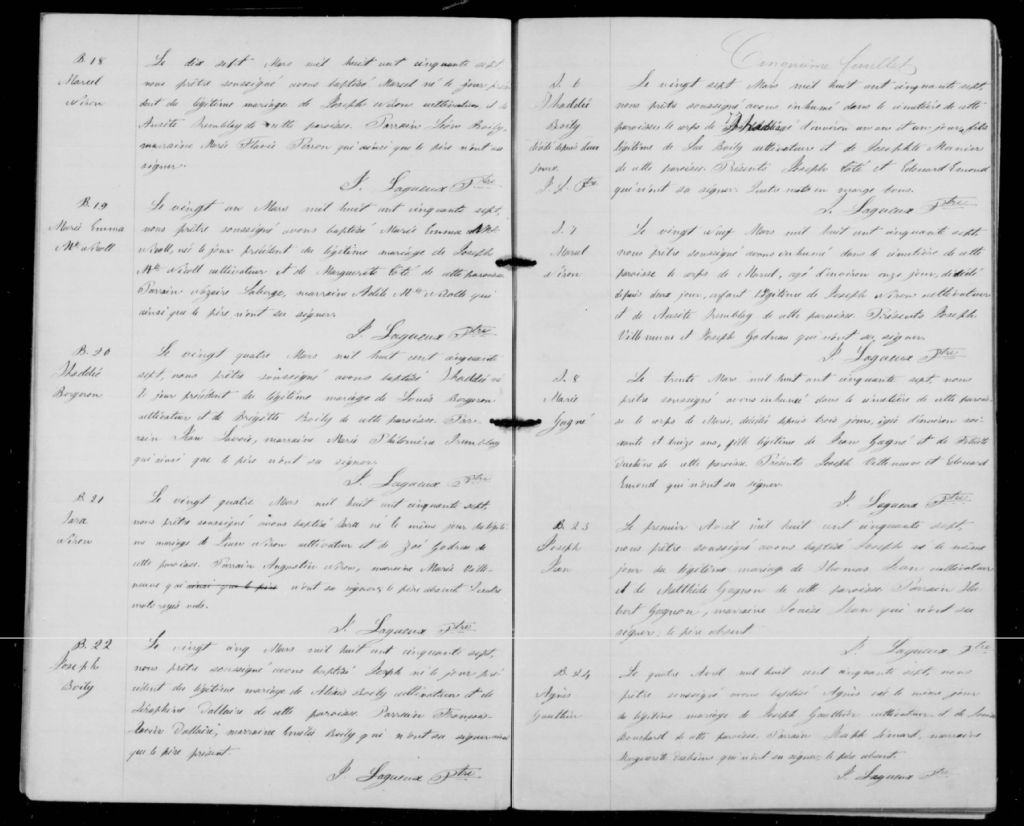 B. 18
Marcel
Néron
Le dix sept Mars mil huit cent cinquante sept
nous prêtre soussigné avons baptisé Marcel né le jour précé
dent du légitime mariage de Joseph Néron cultivateur et de
Tremblay de cette paroisse. Parrain Léon Boily,
marraine Marie Flavie Perron qui ainsi que le père n'ont su
signer.
J. Lagueux Ptre
B. 19
Marie Emma
McNicoll
Le vingt un Mars mil huit cent cinquante sept,
nous prêtre soussigné avons baptisé Marie Emma
née le jour précédent du légitime mariage de Joseph
McNicoll cultivateur et de Marguerite Côté de cette paroisse
Parrain Nazaire Laberge, marraine Adèle McNicoll qui
ainsi que le père n'ont su signer.
J. Lagueux Ptre
B. 20
Thaddée
Bergeron
Le vingt quatre Mars mil huit cent cinquante
sept, nous prêtre soussigné avons baptisé Thaddée né
le jour précédent du légitime mariage de Louis Bergeron
cultivateur et de Brigitte Boily de cette paroisse. Par-
rain Jean Savoie, marraine Marie Philomène Tremblay
qui ainsi que le père n'ont su signer.
J. Lagueux Ptre
B. 21
Néron
Le vingt quatre Mars mil huit cent cinquante sept,
nous prêtre soussigné avons baptisé né le même jour du légiti
me mariage de Néron cultivateur et de Zoé Godreau de
cette paroisse. Parrain Augustin Néron, marraine Marie Ville-
neuve qui ainsi que le père n'ont su signer, le père absent
mots rayés nuls.
J. Lagueux Ptre
B. 22
Joseph
Boily
Le vingt cinq Mars mil huit cent cinquante sept,
nous prêtre soussigné avons baptisé Joseph né le jour pré
cédent du légitime mariage de Boily cultivateur et de
Séraphine Dallaire de cette paroisse. Parrain François-
Xavier Dallaire, marraine Boily qui n'ont su signer ainsi
que le père présent.
J. Lagueux Ptre
Cinquième feuillet
S. 6
Thaddée
Boily
décédé depuis deux
jours.
J. L. Ptre
Le vingt sept Mars mil huit cent cinquante sept,
nous prêtre soussigné avons inhumé dans le cimetière de cette
paroisse le corps de Thaddée âgé d'environ un an et un jour, fils
légitime de Luc Boily cultivateur et de Josephte Meunier
de cette paroisse. Présents Joseph Côté et Edouard Emond
qui n'ont su signer. mots en marge bons.
J. Lagueux Ptre
S. 7
Marcel
Néron
Le vingt neuf Mars mil huit cent cinquante sept
nous prêtre soussigné avons inhumé dans le cimetière de cette
paroisse le corps de Marcel, agé d'environ onze jours, décédé
depuis deux jours, enfant légitime de Joseph Néron cultivateur
et de Tremblay de cette paroisse. Présents Joseph
Villeneuve et Joseph Godreau qui n'ont su signer.
J. Lagueux Ptre
S. 8
Marie
Gagné
Le trente Mars mil huit cent cinquante sept, nous
prêtre soussigné avons inhumé dans le cimetière de cette parois-
se le corps de Marie, décédée depuis trois jours, agée d'environ soi-
xante et treize ans, fille légitime de Jean Gagné et de
de cette paroisse. Présents Joseph Villeneuve et Edouard
Emond qui n'ont su signer.
J. Lagueux Ptre
B. 23
Joseph
Jean
Le premier Avril mil huit cent cinquante sept,
nous prêtre soussigné avons baptisé Joseph né le même
jour du légitime mariage de Thomas Jean cultivateur
et de Matthilde Gagnon de cette paroisse Parrain Hu
bert Gagnon, marraine Louise Jean qui n'ont su
signer, le père absent
J. Lagueux Ptre
B. 24
Agnès
Gauthier
Le quatre Avril mil huit cent cinquante sept, nous
prêtre soussigné avons baptisé Agnès née le même jour
du légitime mariage de Joseph Gauthier cultivateur et de Louise
Bouchard de cette paroisse Parrain Simard, marraine
Marguerite qui n'ont su signer, le père absent.
J. Lagueux Ptre